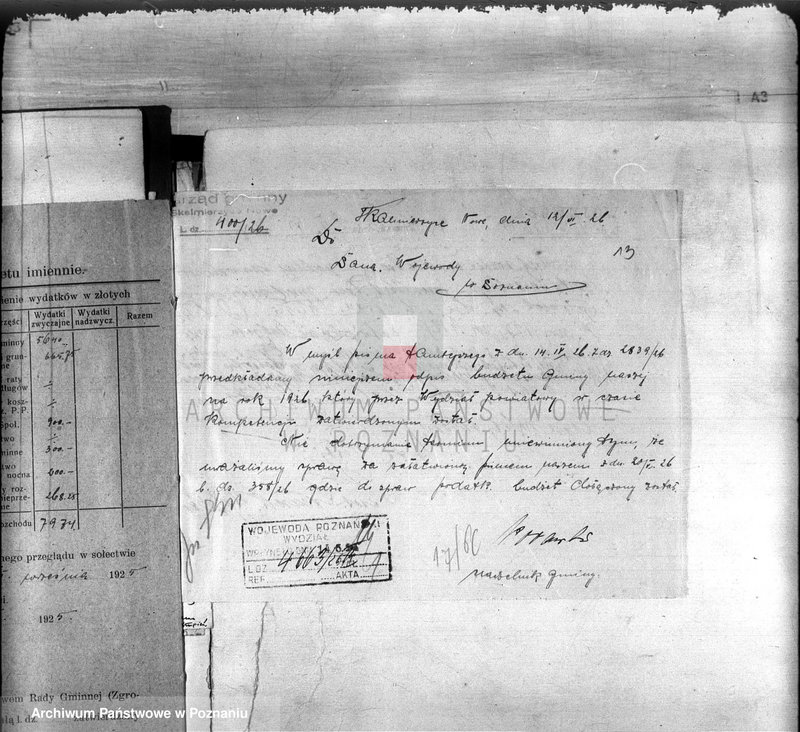 A3
Urząd gminny
Skalmierzyce Nowe
L. dz. 400/26
Skalmierzyce Nowe, dnia 12/VI. 26
13
Do
Pana Wojewody
w Poznaniu
W myśl pisma tamtejszego z dn. 14. IV. 26. L. dz. 2839/26
przedkładamy niniejszem odpis budżetu Gminy naszej
na rok 1926 który przez Wydział powiatowy w czasie
kompetencji zatwierdzonym został.
Nie dotrzymanie terminu uniewinniamy tym, że
uważaliśmy sprawę za załatwioną pismem naszem z dn. 20/V. 26
l. dz. 358/26 gdzie do spraw podatk. budżet dołączony został.
WOJEWODA POZNAŃSKI
WYDZIAŁ
L. DZ. 4663/26
REF. AKTA
17/60
Naczelnik Gminy.
etu imiennie.
ienie wydatków w złotych
zęści Wydatki zwyczajne Wydatki nadzwycz. Razem
minny 5640.-
grun- 665.75
raty
ługów
kosz-
P. P.
spół. 900.-
two
minne 300.-
stwo
nocna 200.-
roz-
ieprze- 268.25
ozchodu 7974
nego przeglądu w sołectwie
września 1925
1925
wem Rady Gminnej (Zgro-
ałą l. dz.
ARCHIWUM PAŃSTWOWE
W POZNANIU
Archiwum Państwowe w Poznaniu